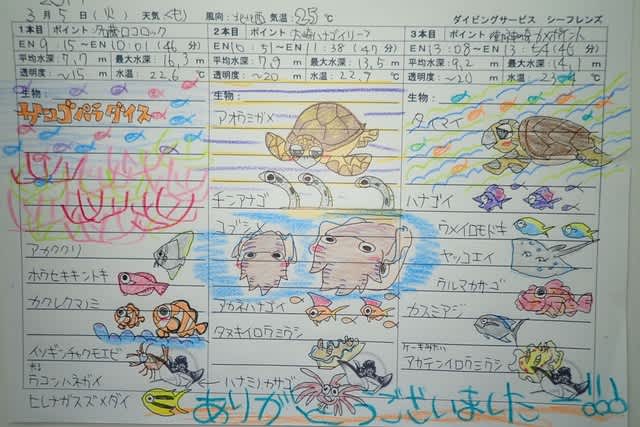 3月5日(火) 天気くもり 風向:北北西 気温:25℃ ダイビングサービス シーフレンズ
1本目 ポイント: 名蔵ロコロック
EN 9:15~EN 10:01(46分)
平均水深:7.7m 最大水深:16.3m
透明度:~15m 水温:22.6℃
生物:
サンゴパラダイス
アカククリ
ホウセキキントキ
カクレクマノミ
イソギンチャクモエビ
ウコンハネガイ
ヒレナガスズメダイ
2本目 ポイント: 大崎ハナゴイリーフ
EN 10:51~EN 11:38(47分)
平均水深:7.9m 最大水深:13.5m
透明度:~20m 水温:22.9℃
生物:
アオウミガメ
チンアナゴ
コブシメ
アカネハナゴイ
タヌキイロウミウシ
ハナミノカサゴ
3本目 ポイント: カメポイント
EN 13:08~EN 13:54(46分)
平均水深:9.2m 最大水深:14.1m
透明度:~20m 水温:23.4℃
生物:
タイマイ
ハナゴイ
ウメイロモドキ
ヤッコエイ
ウルマカサゴ
カスミアジ
ケーキみたい
アカテンイロウミウシ
ありがとうございましたー!!!